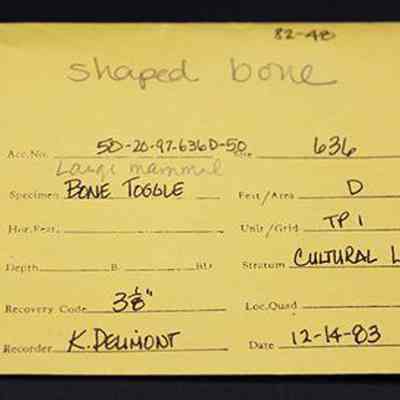 82-48
shaped bone
Acc. No. 50-20-97-636D-50 Site 636
Large mammal
Specimen BONE TOGGLE Feat/Area D
Hor. Feat. Unit/Grid TP 1
Depth B. BD Stratum CULTURAL L
Recovery Code 3 1/8" Loc. Quad
Recorder K. DELIMONT Date 12-14-83